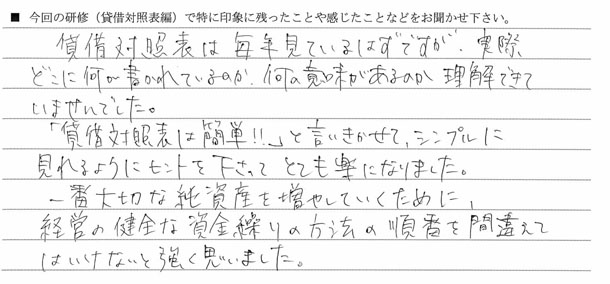 ■ 今回の研修（貸借対照表編）で特に印象に残ったことや感じたことなどをお聞かせ下さい。
貸借対照表は毎年見ているはずですが、実際
どこに何が書かれているのか、何の意味があるのか理解できて
いませんでした。
「貸借対照表は簡単!!」と言いきかせて、シンプルに
見れるようにヒントを下さって とても楽になりました。
一番大切な純資産を増やしていくために、
経営の健全な資金繰りの方法の順番を間違えて
はいけないと強く思いました。